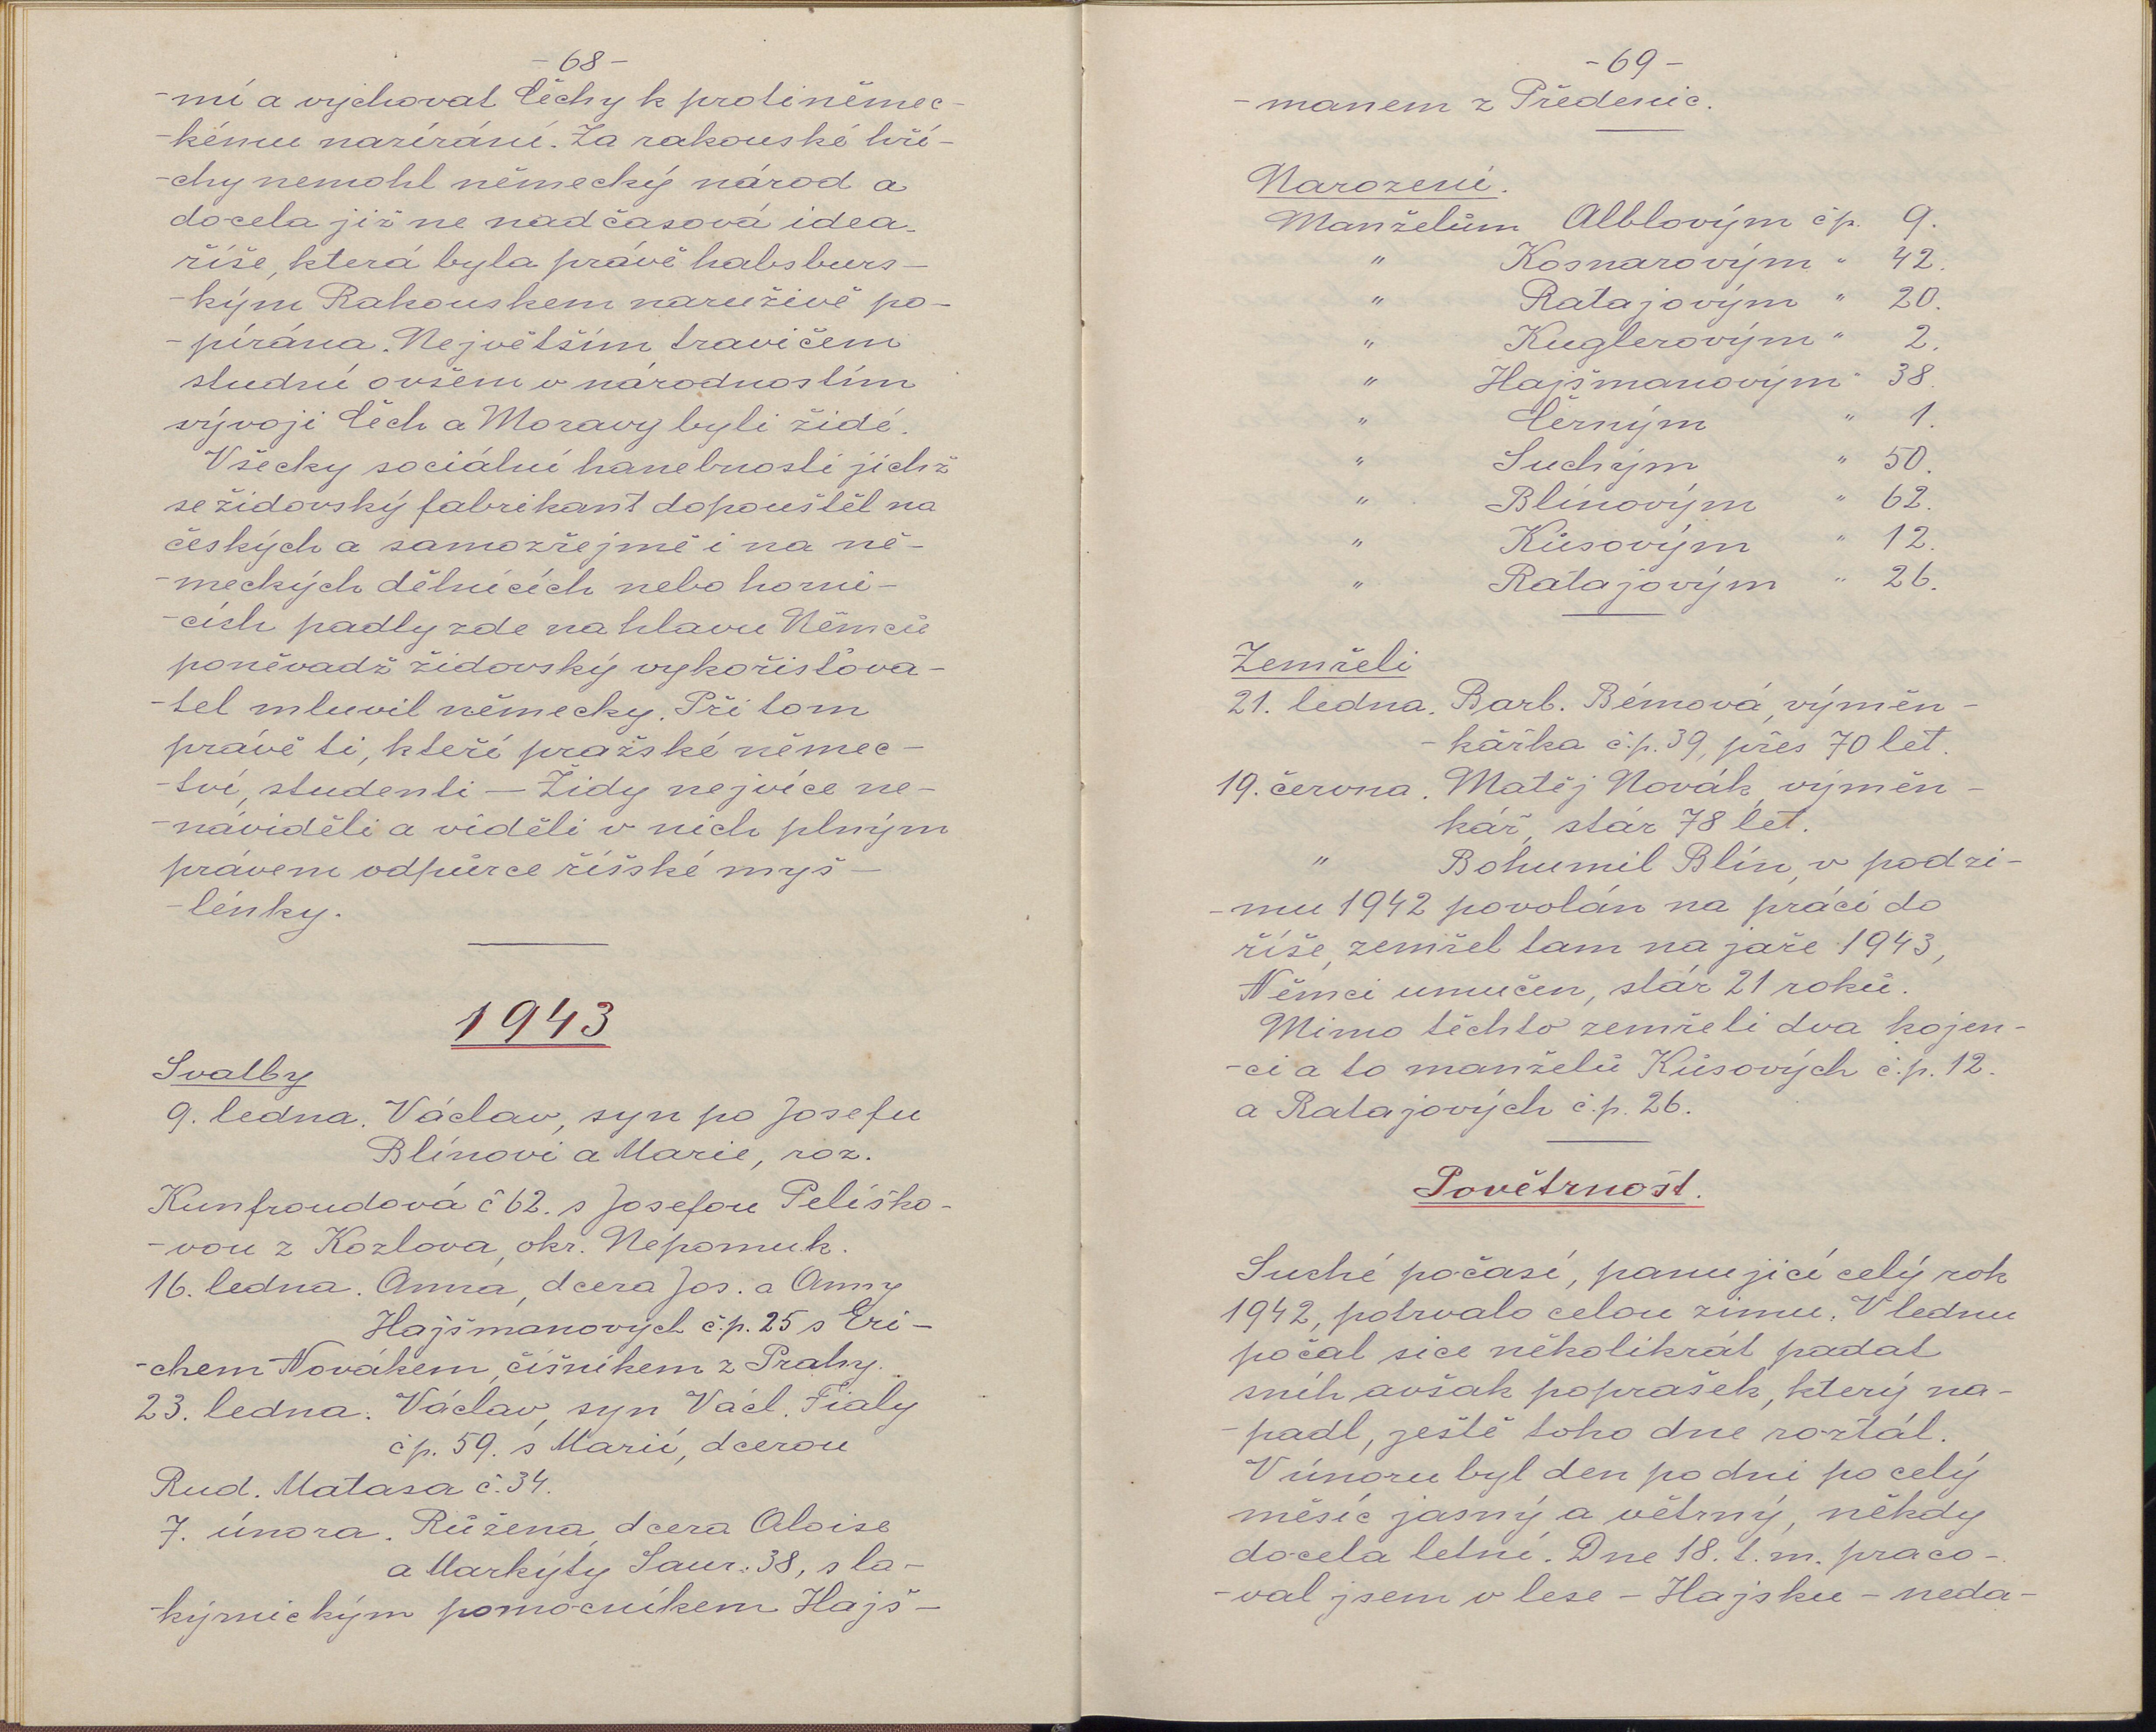 - 68 -
-mi a vychovat Čechy k protiněmec-
-kému nazírání. Za rakouské hří-
-chy nemohl německý národ a
docela již ne nadčasová idea
říše, která byla právě habsburs-
-kým Rakouskem naruživě po-
-pírána. Největším travičem
studní ovšem v národnostím
vývoji Čech a Moravy byli židé.
Všecky sociální hanebnosti jichž
se židovský fabrikant dopouštěl na
českých a samozřejmě i na ně-
-meckých dělnících nebo horní-
-cích padly zde na hlavu Němců
poněvadž židovský vykořisťova-
-tel mluvil německy. Při tom
právě ti, kteří pražské němec-
-tví, studenti — Židy nejvíce ne-
-náviděli a viděli v nich plným
právem odpůrce říšské myš-
-lénky.
1943
Svatby
9. ledna. Václav, syn po Josefu
Blínovi a Marie, roz.
Kunfroudová č 62. s Josefou Pelíško-
-vou z Kozlova, okr. Nepomuk.
16. ledna. Anna, dcera Jos. a Anny
Hajšmanových č.p. 25 s Eri-
-chem Novákem, číšníkem z Prahy.
23. ledna. Václav, syn Václ. Fialy
čp. 59. s Marií, dcerou
Rud. Matasa č. 34.
7. února. Růžena, dcera Aloise
a Markýty Saur. 38, s la-
-kýrnickým pomocníkem Hajš-
- 69 -
-manem z Předenic.
Narození.
Manželům Alblovým čp. 9.
" Kosnarovým " 42.
" Ratajovým " 20.
" Kuglerovým " 2.
" Hajšmanovým " 38.
" Černým " 1.
" Suchým " 50.
" Blínovým " 62.
" Kůsovým " 12.
" Ratajovým " 26.
Zemřeli
21. ledna. Barb. Bémová, výměn-
-kářka č.p. 39, přes 70 let.
19. června. Matěj Novák, výměn-
kář, stár 78 let.
" Bohumil Blín, v podzi-
-mu 1942 povolán na práci do
říše, zemřel tam na jaře 1943,
Němci umučen, stár 21 roků.
Mimo těchto zemřeli dva kojen-
-ci a to manželů Kůsových č.p. 12.
a Ratajových č.p. 26.
Povětrnost.
Suché počasí, panující celý rok
1942, potrvalo celou zimu. V lednu
počal sice několikrát padat
sníh avšak poprašek, který na-
-padl, ještě toho dne roztál.
V únoru byl den po dni po celý
měsíc jasný a větrný, někdy
docela letní. Dne 18. t. m. praco-
-val jsem v lese - Hajsku - neda-